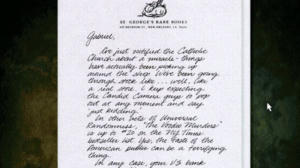 ST. GEORGE'S RARE BOOKS
Gabriel,
I've just notified the Catholic
Church about a miracle - things
have actually been picking up
around the shop. We've been going
through stock like... well, like
a real store. I keep expecting
the Candid Camera guys to pop
out at any moment and say
just kidding.
In other bits of Universal
Randomness, "The Voodoo Murders"
is up to #20 on the NY Times
bestseller list. Yes, the taste of the
American public can be a terrifying
thing.
In any case, your US bank